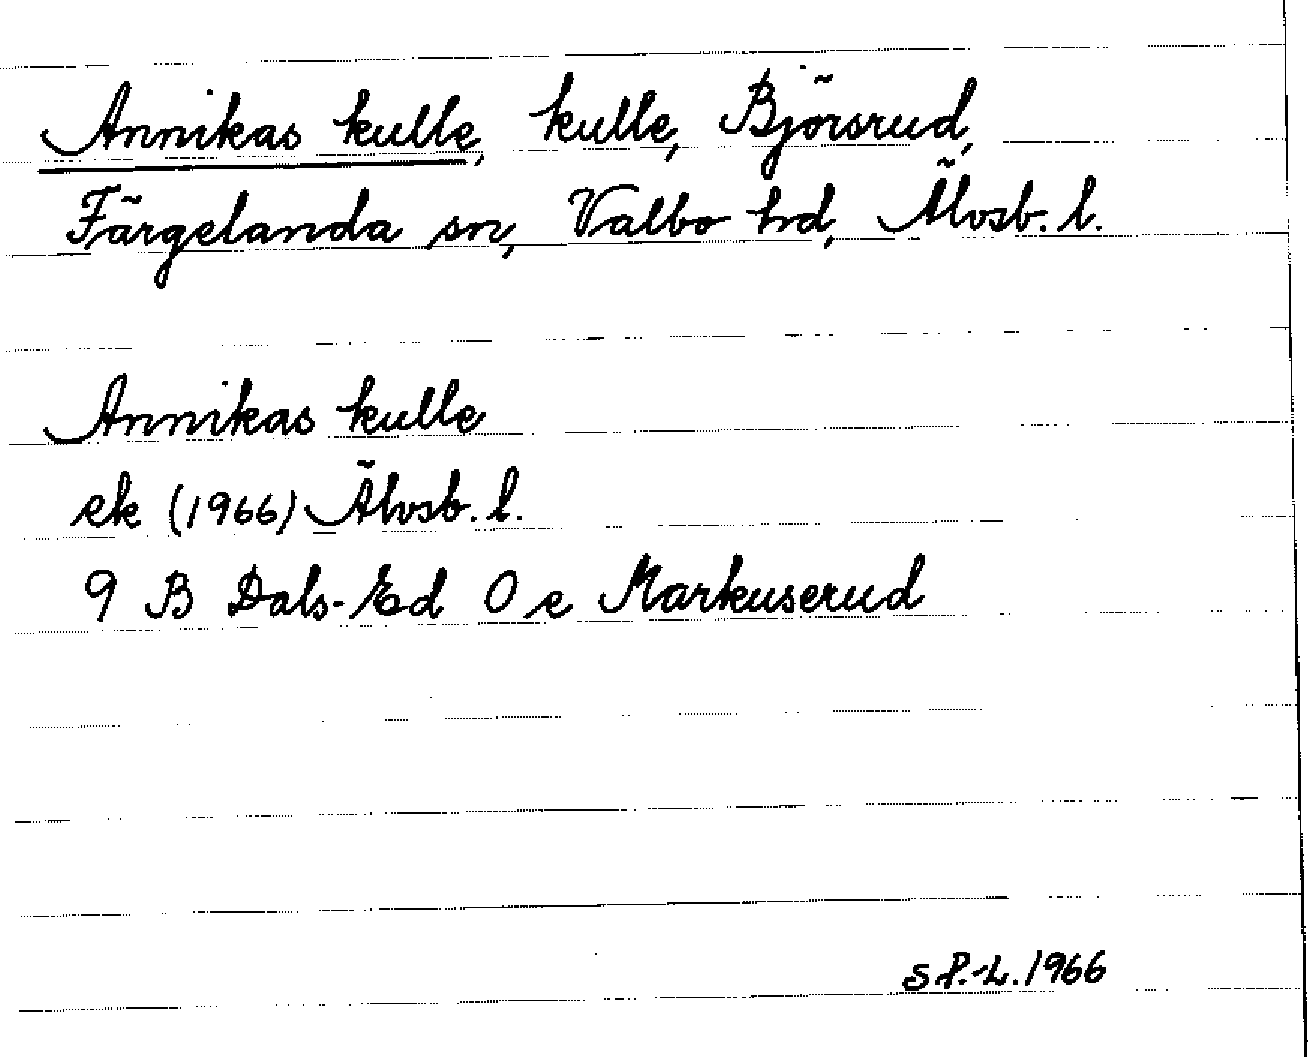 Annikas kulle, kulle, Björsrud,
Färgelanda sn, Valbo hd, Älvsb. l.
Annikas kulle
ek (1966) Älvsb. l.
9 B Dals-Ed 0 e Markuserud
S.P.-L. 1966